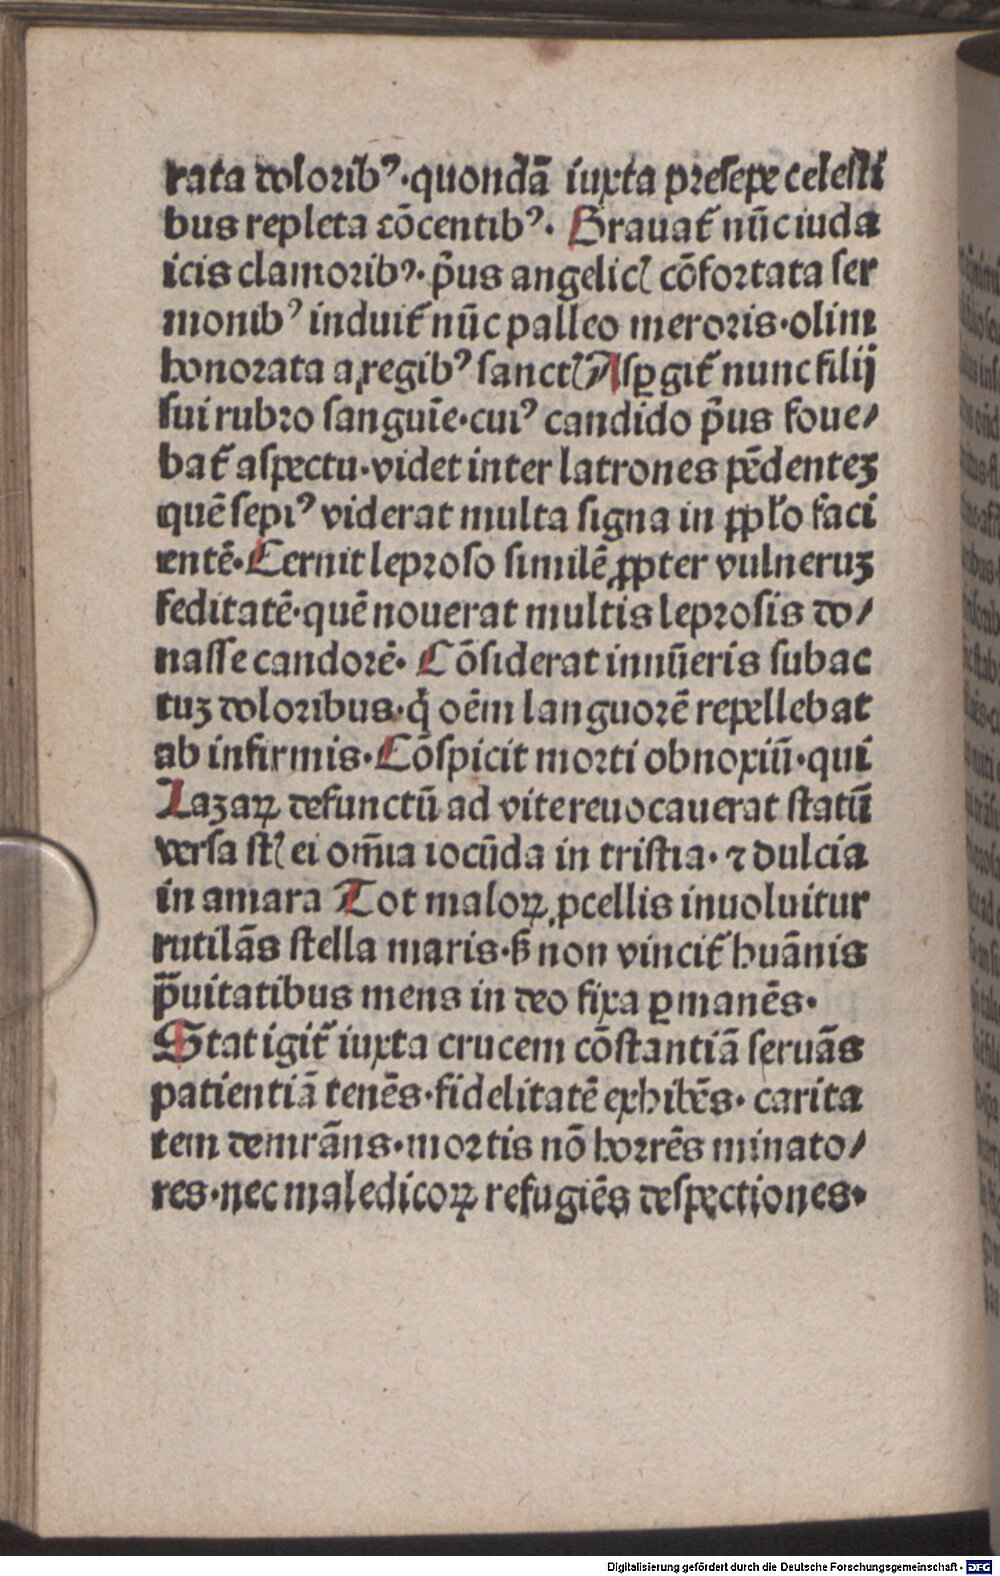 rata dolorib⁹·quondā iuxta presepe celesti
bus repleta cōcentib⁹· Grauat᷑ nūc iuda
icis clamorib⁹· p̄us angelicꝭ cōfortata ser
monib⁹ induit᷑ nūc palleo meroris·olim
honorata a regib⁹ sanctꝭ Aspgit᷑ nunc filij
sui rubro sanguīe·cui⁹ candido p̄us foue/
bat᷑ aspectu·videt inter latrones pēdentez
quē sepi⁹ viderat multa signa in ꝓpl'o faci
entē·Cernit leproso similē ꝓpter vulneruz
feditatē·quē nouerat multis leprosis do/
nasse candorē· Cōsiderat innūeris subac
tuz doloribus·q̇ oēm languorē repellebat
ab infirmis·Cōspicit morti obnoxiū·qui
Lazaꝝ defunctū ad vite reuocauerat statū
versa sꝭ ei om̄ia iocūda in tristia· ⁊ dulcia
in amara Tot maloꝝ ꝓcellis inuoluitur
rutilās stella maris·ẜ non vincit᷑ huānis
p̄uitatibus mens in deo fixa ꝑmanēs·
Stat igit᷑ iuxta crucem cōstantiā seruās
patientiā tenēs·fidelitatē exhibēs· carita
tem demrāns·mortis nō horrēs minato/
res·nec maledicoꝝ refugiēs despectiones·
Digitalisierung gefördert durch die Deutsche Forschungsgemeinschaft - DFG